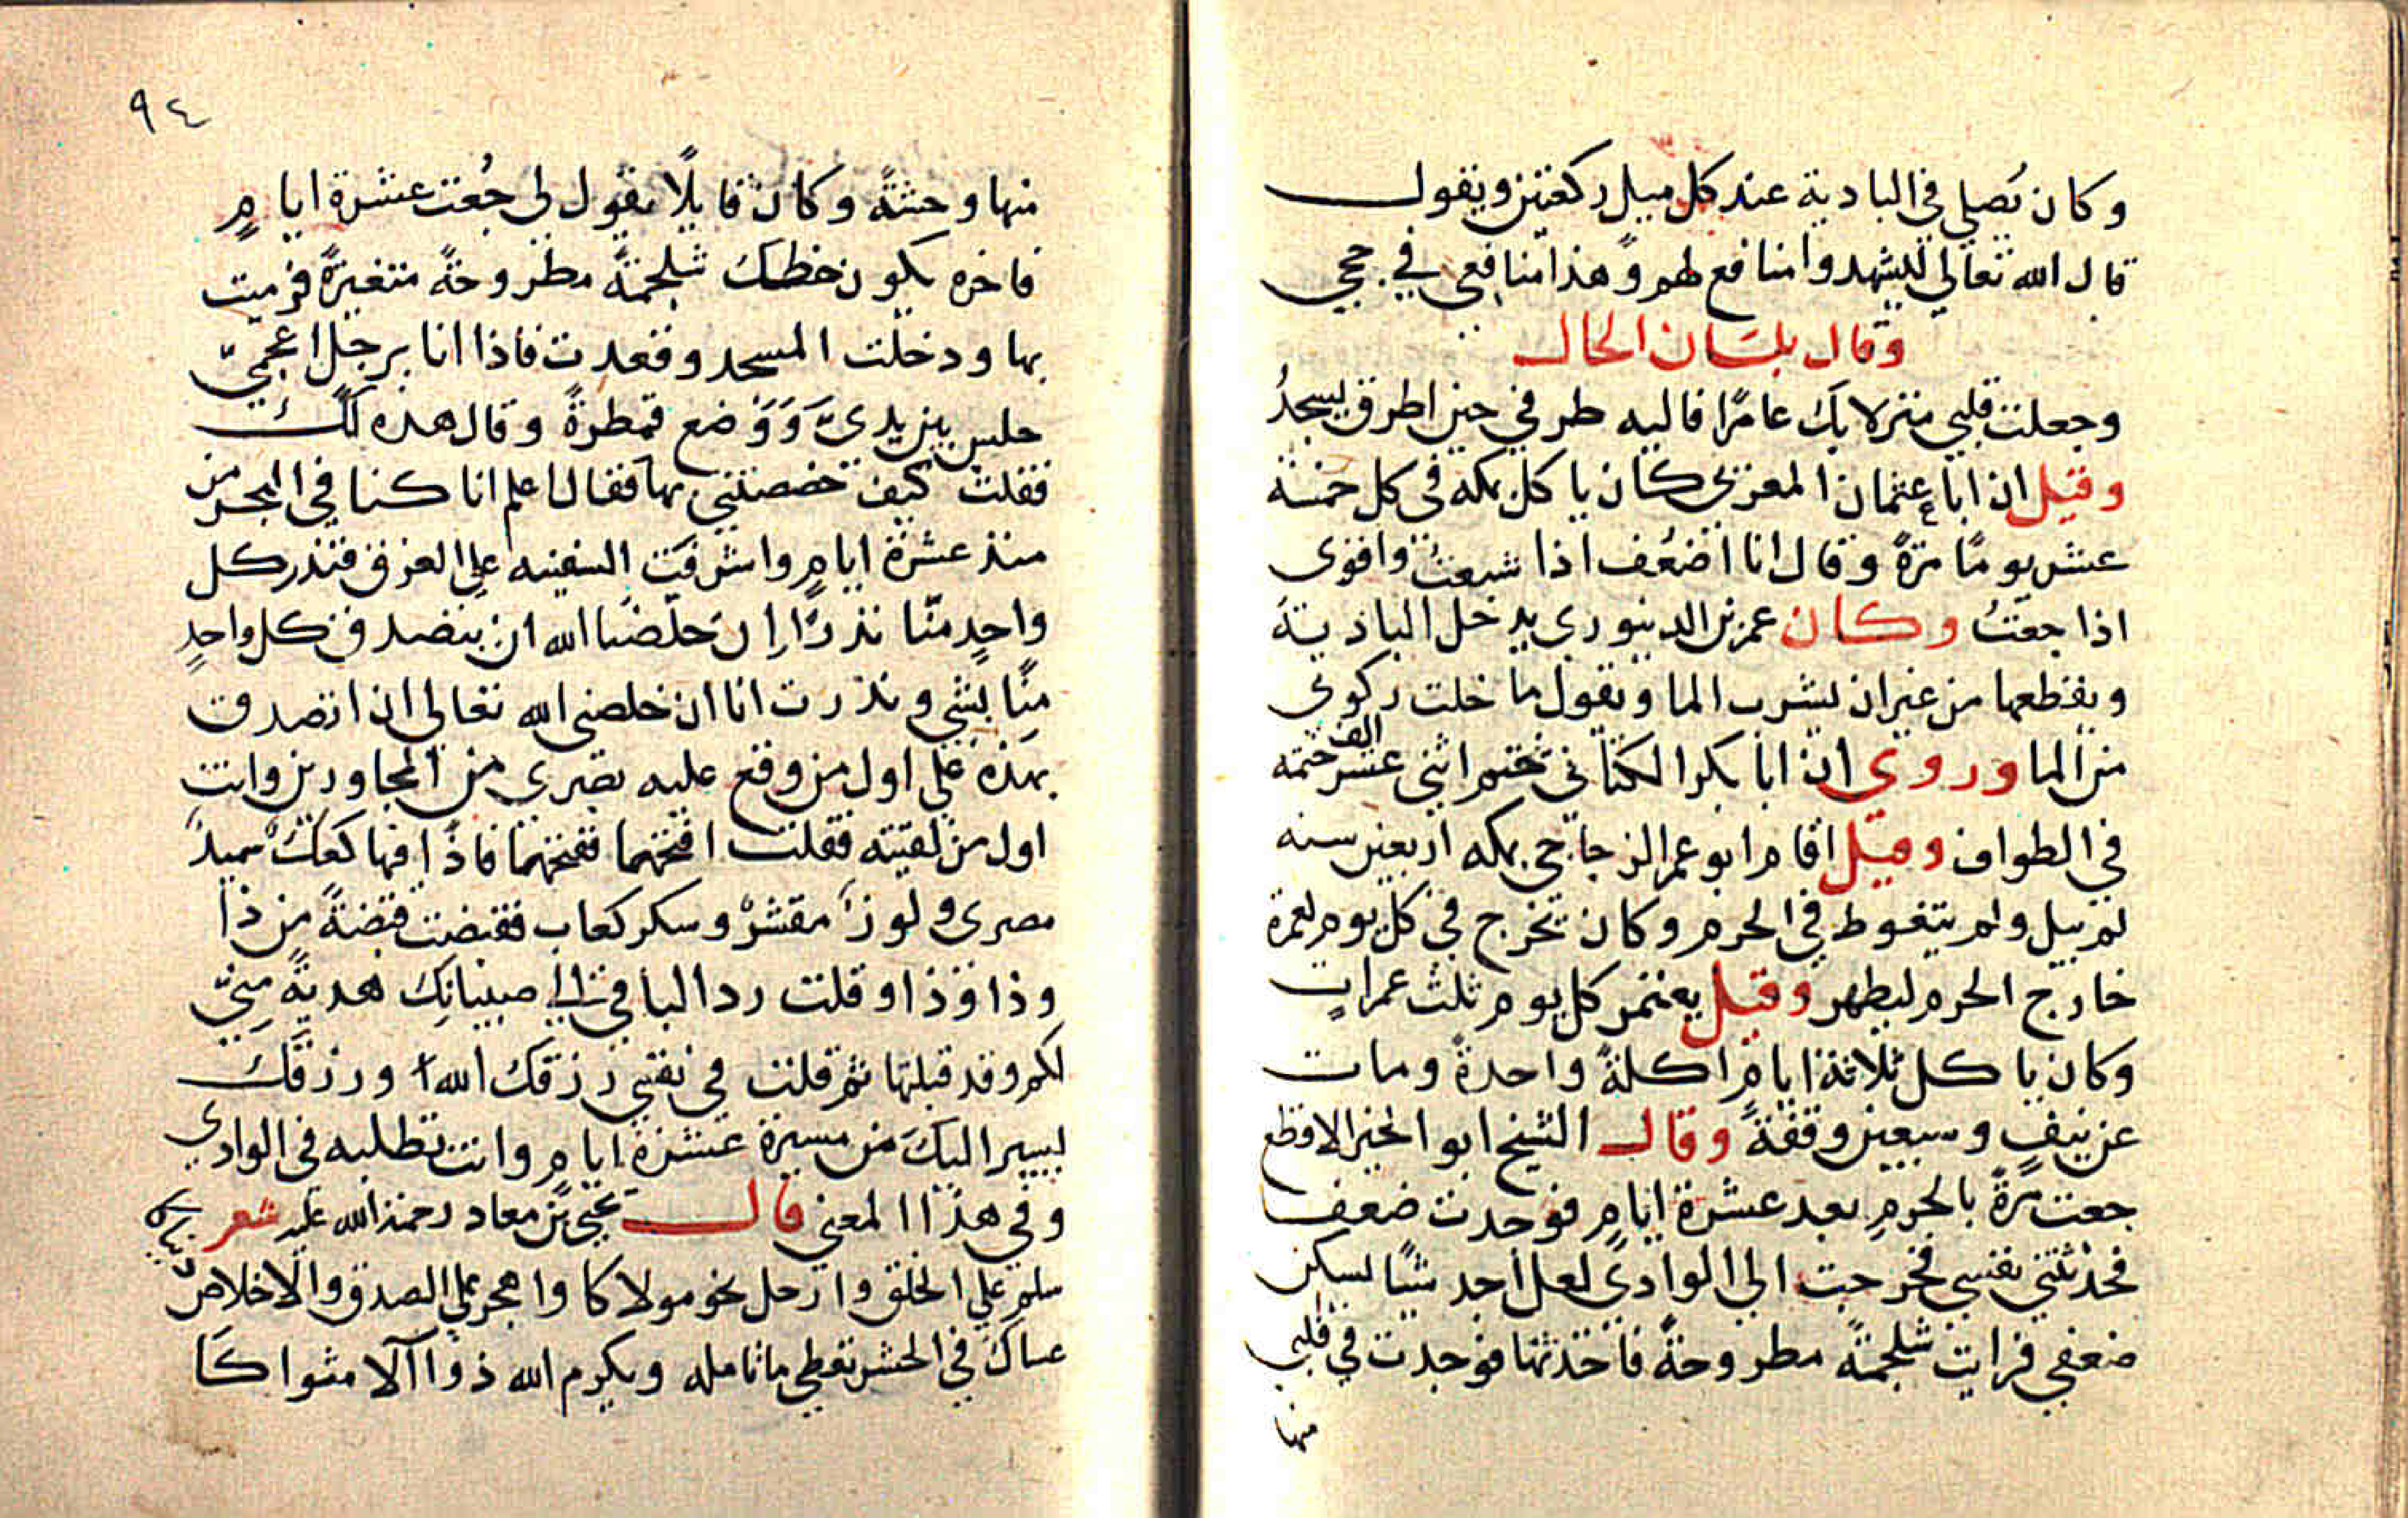 وكان يصلي في البادية عند كل ميل ركعتين ويقول
قال الله تعالي ليشهدوا منافع لهم وهذا منافعي في حجي
وقال بلسان الحال
وجعلت قلبي منزلا بك عامرًا فاليه طرفي حين اطرق يسجدُ
وقيل ان ابا عثمان المغربي كان ياكل بمكه في كل خمسة
عشر يومًا مرةً وقال انا اضعُف اذا شبعتُ واقوى
اذا جعتُ وكان عمر بن الدينوري يدخل البادية
ويقطعها من غير ان يشرب الما ويقول ما خلت ركوتي
من الما وروي ان ابا بكر الكتاني ختم اثني عشر الف ختمه
في الطواف وقيل اقام ابو عمر الزجاجي بمكه اربعين سنه
لم يبل ولم يتغوط في الحرم وكان يخرج في كل يوم لعمرة
خارج الحرم ليطهر وقيل يعتمر كل يوم ثلث عمراتٍ
وكان ياكل ثلاثة ايامٍ اكلةً واحدةً ومات
عن نيفٍ وسبعين وقفةً وقال الشيخ ابو الخير الاقطع
جعت مرةً بالحرم بعد عشرة ايامٍ فوجدت ضعف
فحدثتني نفسي فخرجت الي الوادي لعل اجد شيًا ليسكن
ضعفي فرايت شلجمةً مطروحةً فاخذتها فوجدت في قلبي
منها
٩٤
منها وحشةً وكان قايلًا يقول لي جُعت عشرة ايامٍ
فاخره يكون حظك شلجمةً مطروحةً متغيرةً فرميت
بها ودخلت المسجد وقعدت فاذا انا برجل اعجميّ
جلس بين يديَّ وَوَضع قمطرةً وقال هذه لك
فقلت كيف خصصتني بها فقال اعلم انا كنا في البحر من
منذ عشرة ايامٍ واشرفَت السفينه علي الغرق فنذر كل
واحدٍ منّا نذرًا إن خلّصنا الله ان يتصدق كل واحدٍ
منًا بشي ونذرت انا ان خلصني الله تعالي ان اتصدق
بهذه علي اول من وقع عليه بصري من المجاورين وانت
اول من لقيته فقلت افتحهما ففتحهما فاذا فيها كعك سميد
مصري ولوزًا مقشرْ وسكر كعاب فقبضت قبضةً من ذا
وذا وذا وقلت رد الباقي الي صبيانك هديةً منّي
لكم وقد قبلتها ثم قلت في نفسي رزقك الله ورزقك
ليسير اليك من مسيرة عشرة ايامٍ وانت تطلبه في الوادي
وفي هذا المعني قال يحي بن معاد رحمة الله عليه شعر
سلم علي الخلق وارحل نحو مولاكا واهجر علي الصدق والاخلاص
عساك في الحشر تعطي ما تامله ويكرم الله ذوا الآلا مثواكَا